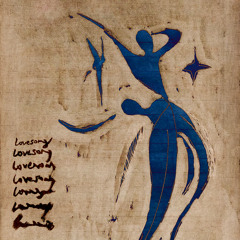 Lovesong
Lovesong
Lovesong
Lovesong
Lovesong